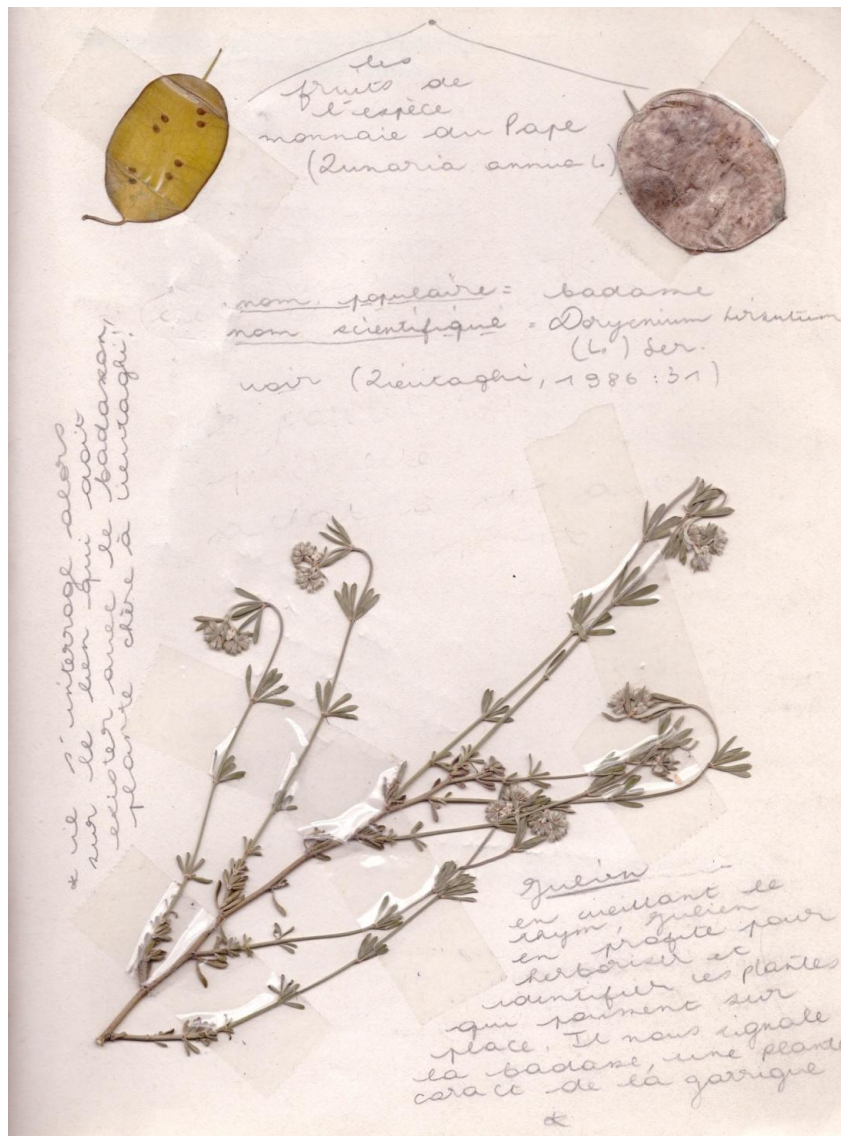 les
fruits de
l'espèce
monnaie du Pape
(Lunaria annua L)
nom populaire = badasse
nom scientifique = Dorycnium hirsutum
(L.) Ser.
voir (Lieutaghi, 1986 : 31)
* il s'interroge alors
sur le lien qui doit
exister avec le badasson,
plante chère à Lieutaghi!
Julien
en cueillant le
thym, Julien
en profite pour
herboriser et
identifier les plantes
qui poussent sur
place. Il nous signale
la badasse, une plante
caract de la garrigue
*